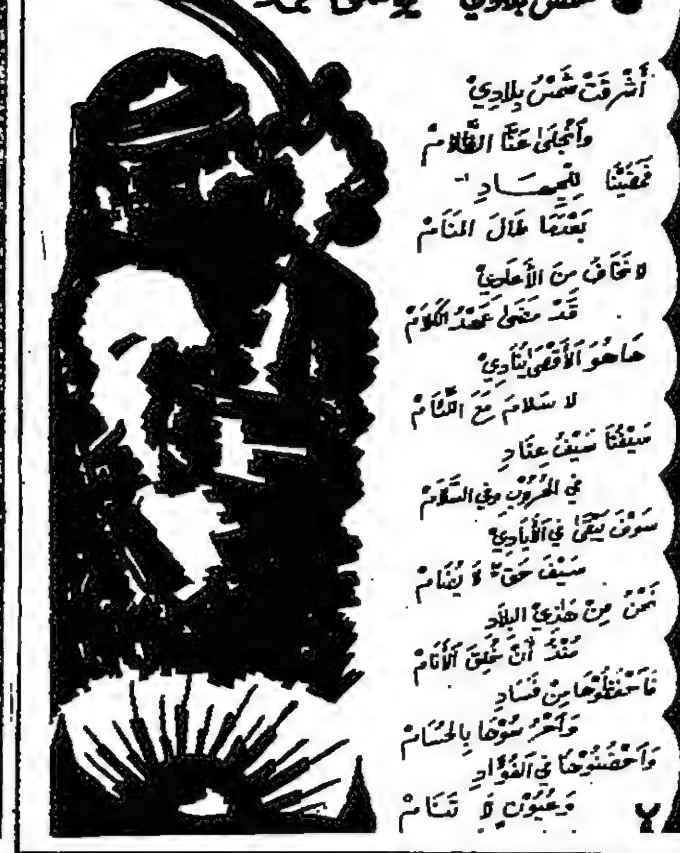 ● شمس بلادي
أَشْرَقَتْ شَمْسُ بِلادِيْ
وَانْجَلَىٰ عَنَّا الظَّلَامْ
فَمَضَيْنَا لِلْجِهَادِ
بَعْدَمَا طَالَ المَنَامْ
لا نَخَافُ مِنَ الأَعَادِيْ
قَدْ مَضَىٰ عَهْدُ الكَلَامْ
هَاهُوَ الأَقْصَىٰ يُنَادِيْ
لا سَلامَ مَعَ اللِّئَامْ
سَيْفُنَا سَيْفُ عِنَادِ
في الحُرُوْبِ وفي السَّلَامْ
سَوْفَ يَبْقَىٰ في الأَيَادِيْ
سَيْفَ حَقٍّ لَا يُضَامْ
نَحْنُ مِنْ هَذِيْ البِلادِ
مُنْذُ أَنْ خُلِقَ الأَنَامْ
فَاحْفَظُوْهَا مِنْ فَسَادِ
وَاحْرُسُوْهَا بِالحُسَامْ
وَاحْضُنُوْهَا في الفُؤَادِ
وَعُيُوْنٍ لَا تَنَامْ
٢